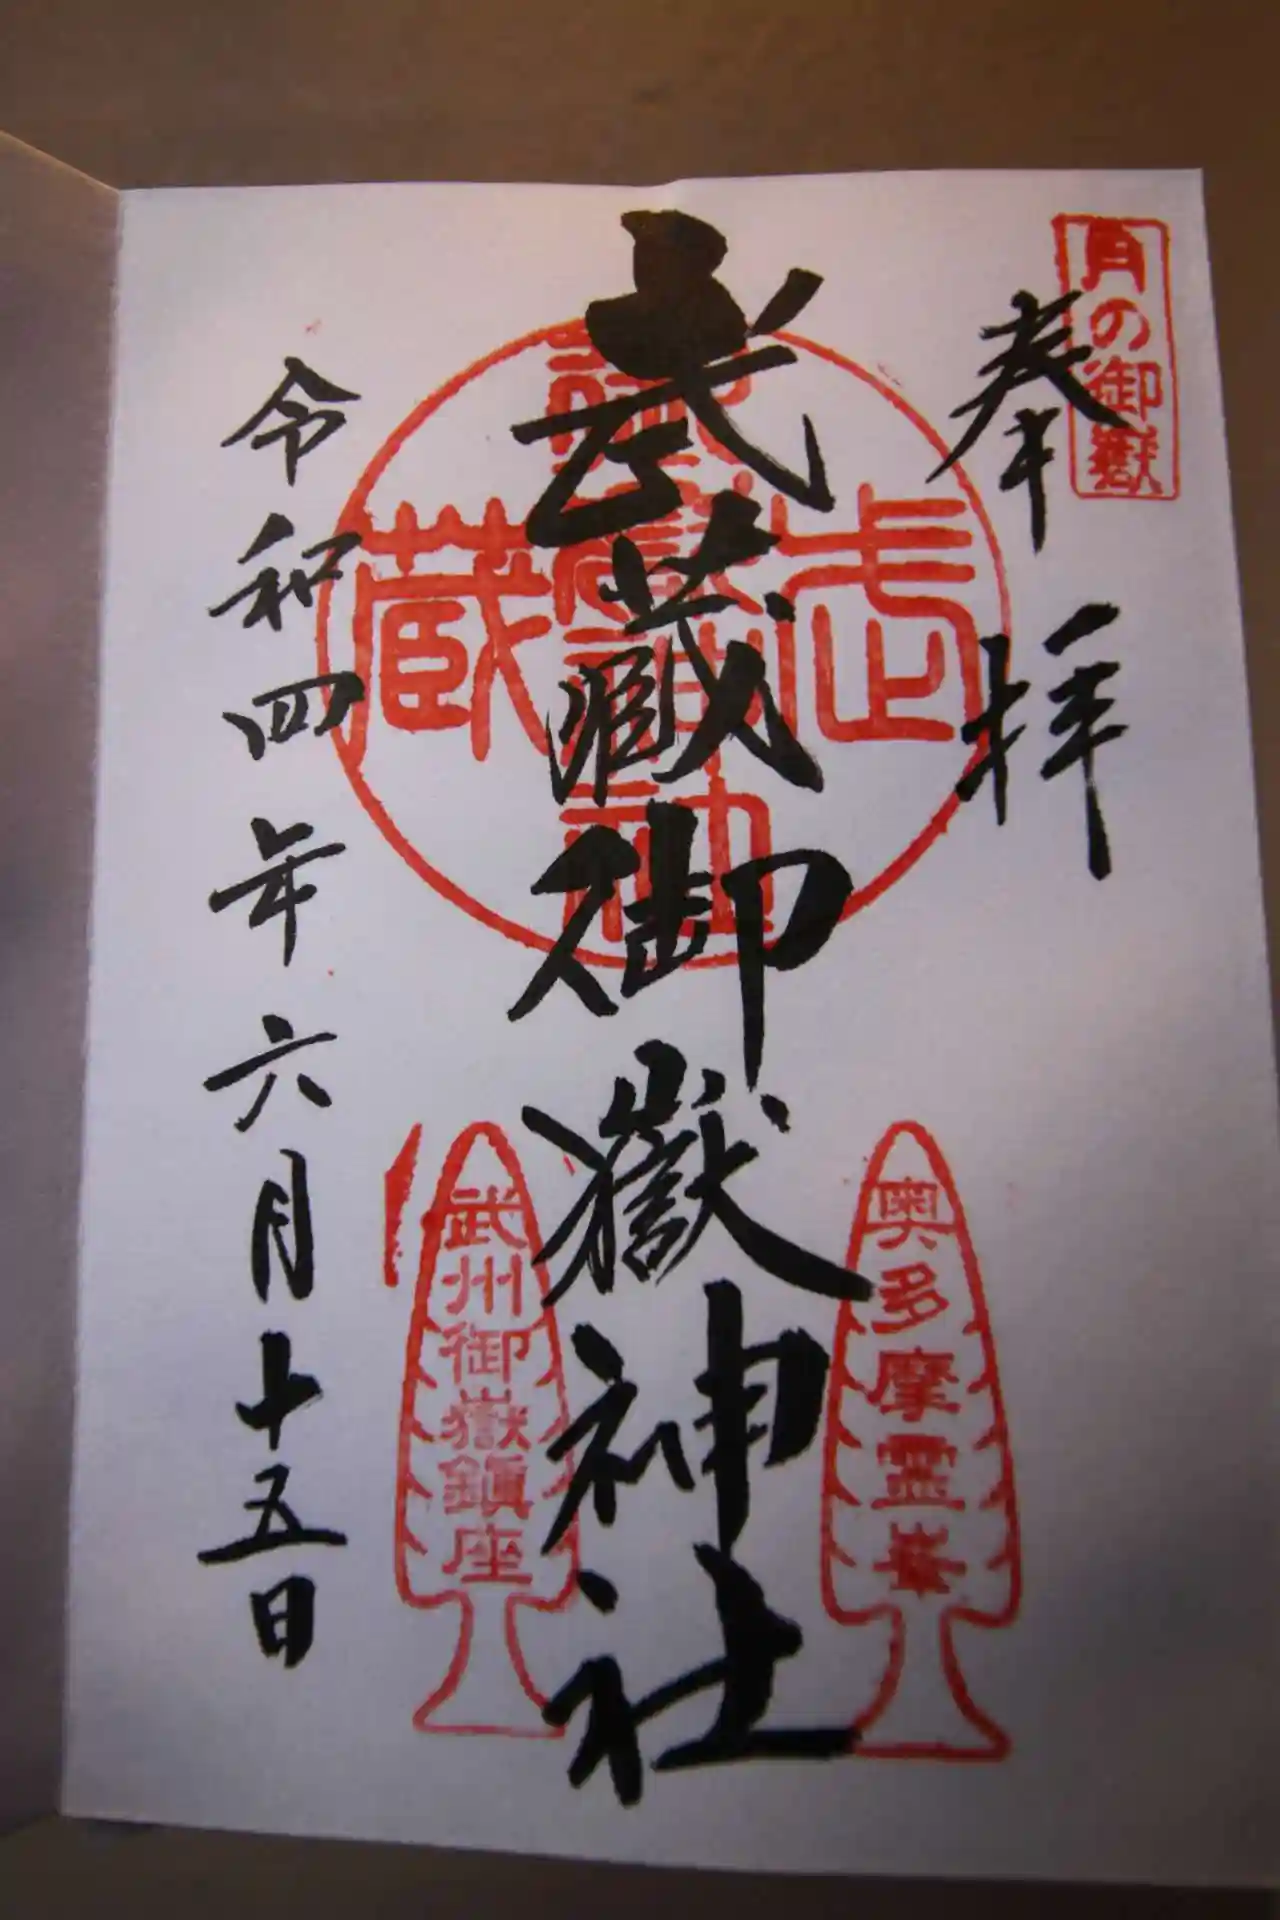 月の御嶽
奉拝
武蔵御嶽神社
令和四年六月十五日
武
蔵
奥多摩霊峯
武州御嶽鎮座